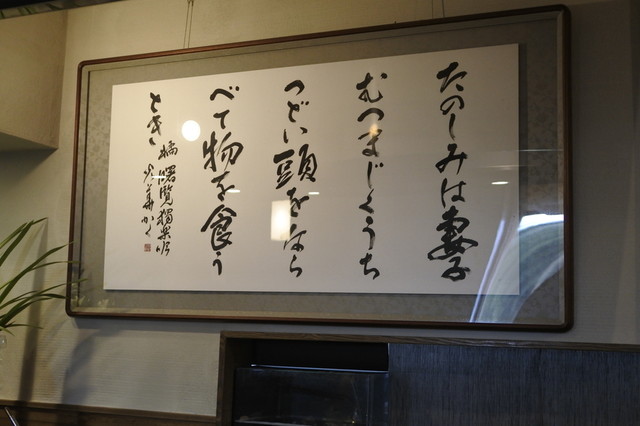 たのしみは妻子
むつまじくうち
つどい頭をなら
べて物を食う
とき
橘曙覧獨楽吟
かく